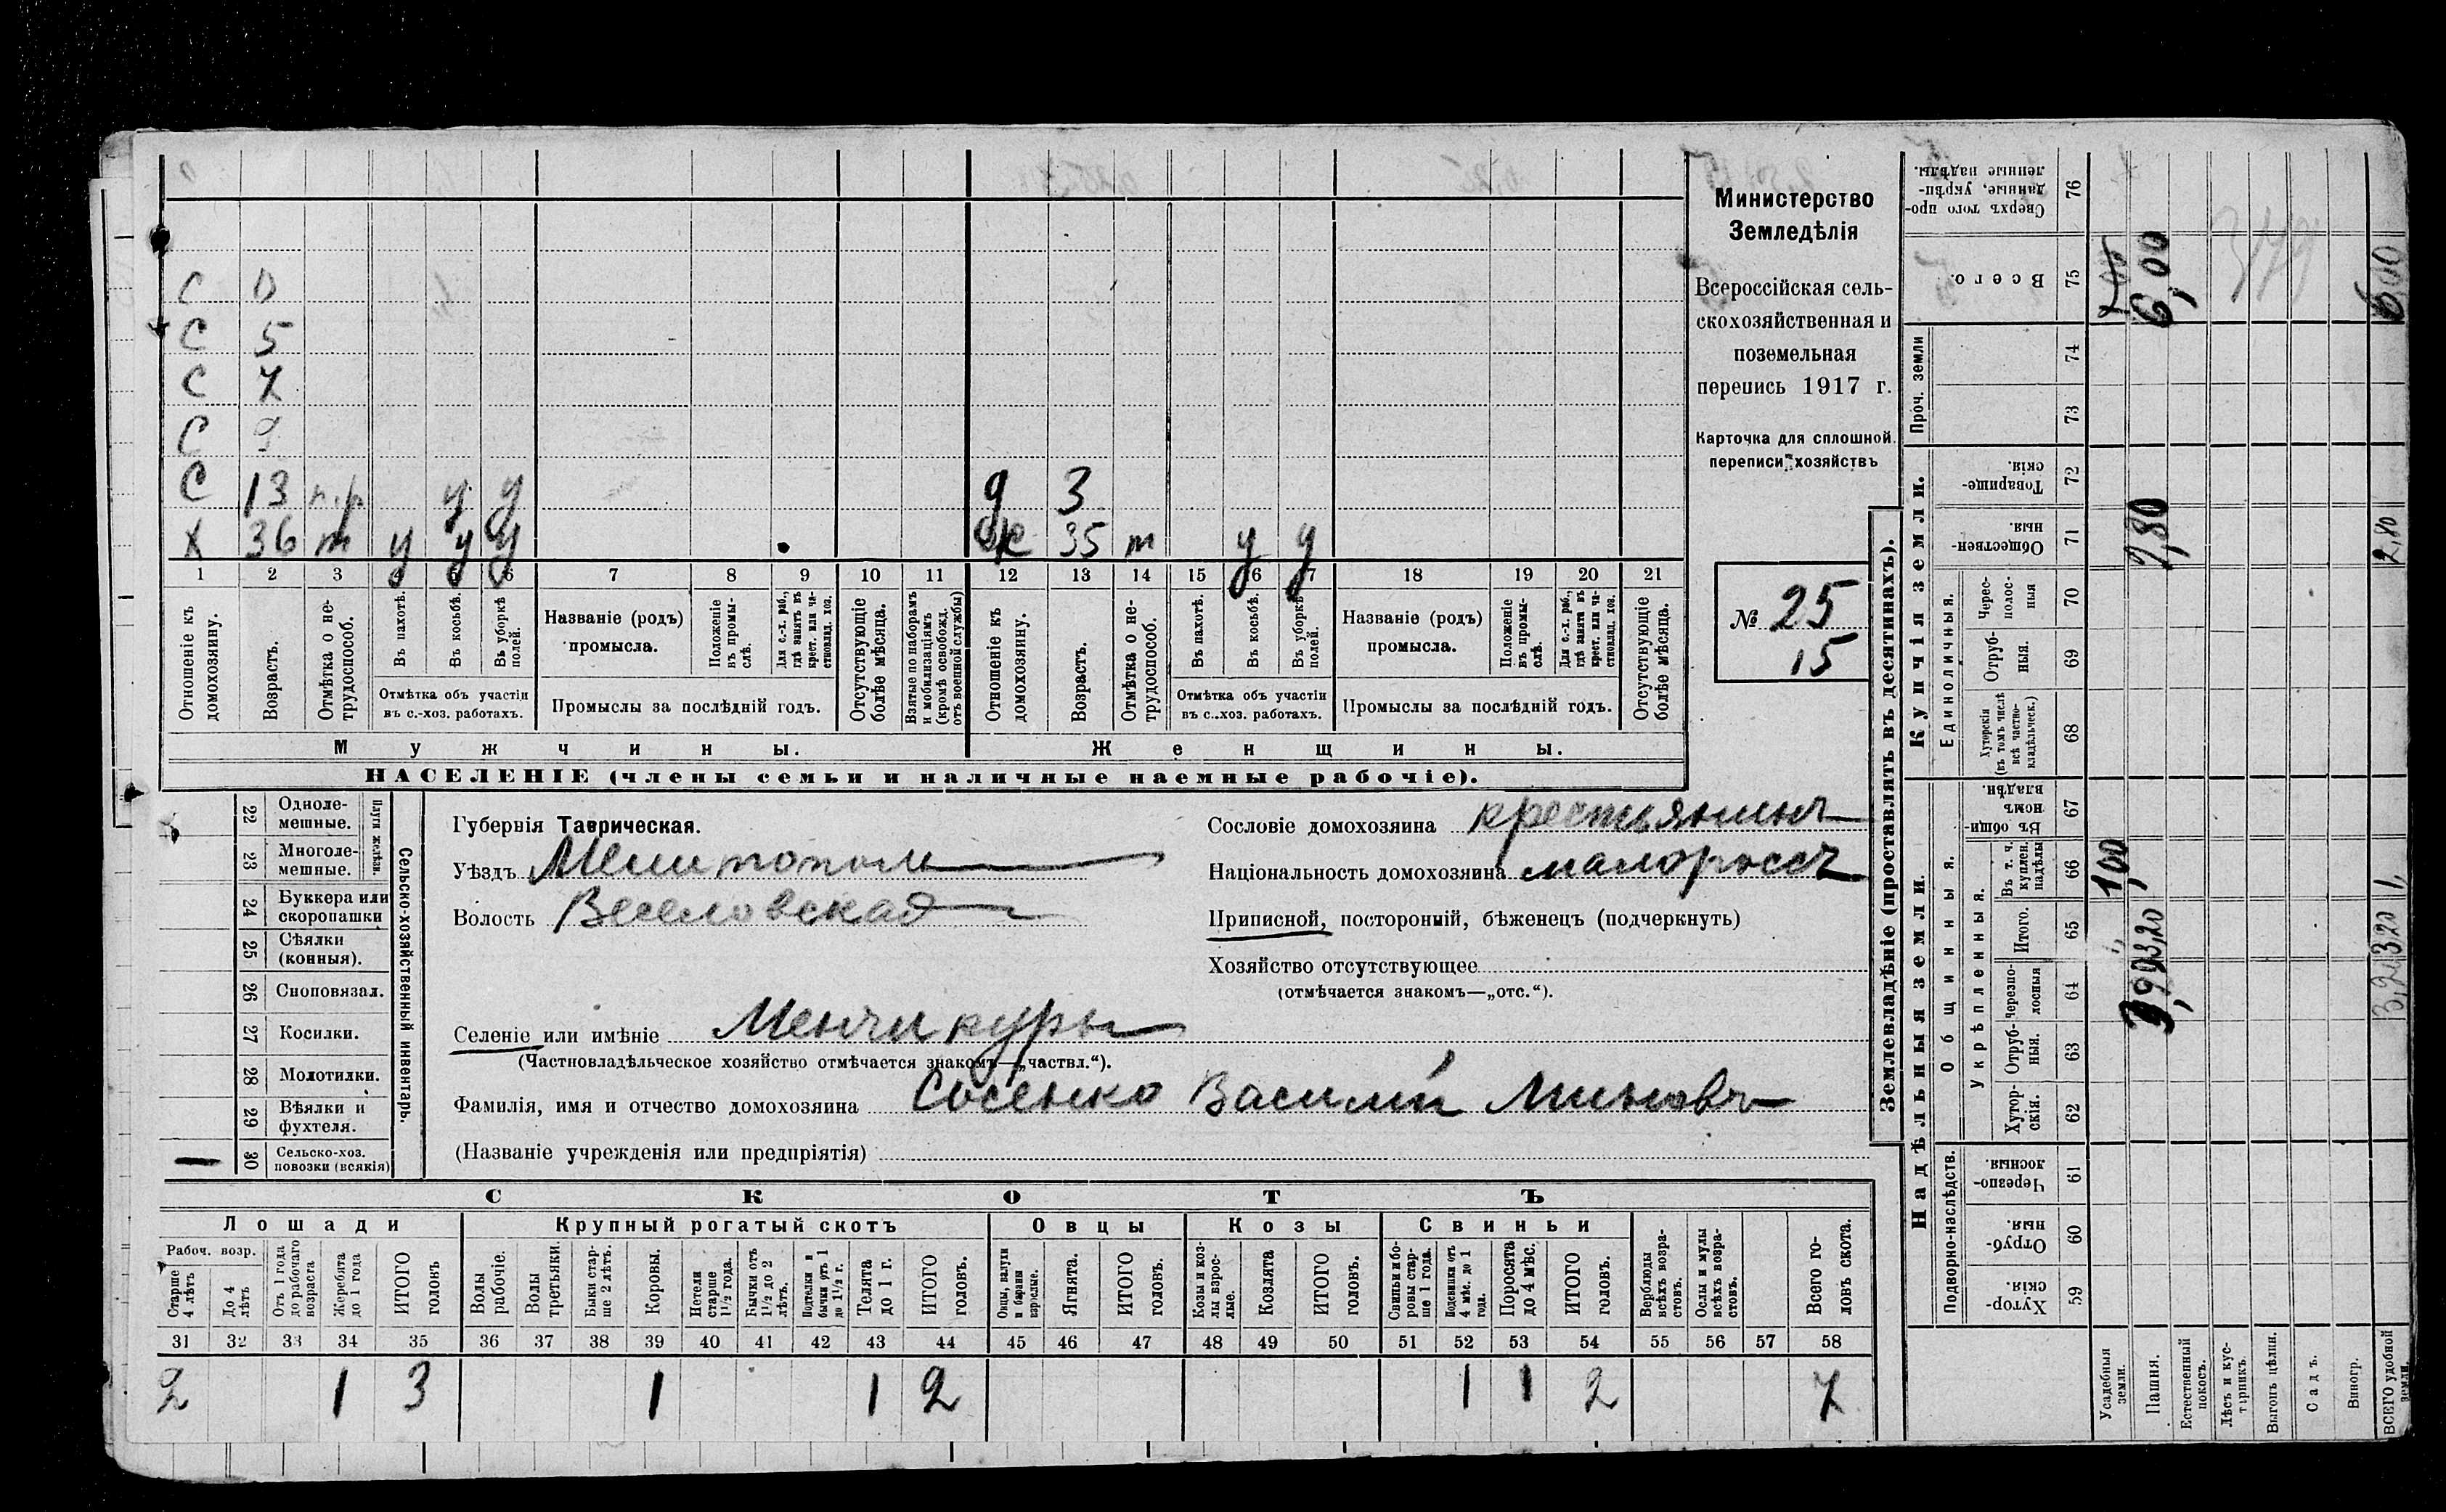 С 0
С 5
С 7
С 9
С 13 п.р. у у д 3
Х 36 т у у у ж 35 т у у
1 2 3 4 5 6 7 8 9 10 11 12 13 14 15 16 17 18 19 20 21
Отношеніе къ домохозяину.
Возрастъ.
Отмѣтка о нетрудоспособ.
Въ пахотѣ.
Въ косьбѣ.
Въ уборкѣ полей.
Отмѣтка объ участіи
въ с.-хоз. работахъ.
Названіе (родъ)
промысла.
Положеніе въ промыслѣ.
Для с.-х. раб., гдѣ занятъ въ крест. или частновлад. хоз.
Промыслы за послѣдній годъ.
Отсутствующіе болѣе мѣсяца.
Взятые по наборамъ и мобилизаціямъ (кромѣ освобожд. отъ военной службы)
Отношеніе къ домохозяину.
Возрастъ.
Отмѣтка о нетрудоспособ.
Въ пахотѣ.
Въ косьбѣ.
Въ уборкѣ полей.
Отмѣтка объ участіи
въ с.-хоз. работахъ.
Названіе (родъ)
промысла.
Положеніе въ промыслѣ.
Для с.-х. раб., гдѣ занята въ крест. или частновлад. хоз.
Промыслы за послѣдній годъ.
Отсутствующіе болѣе мѣсяца.
Мужчины. Женщины.
НАСЕЛЕНІЕ (члены семьи и наличные наемные рабочіе).
Министерство
Земледѣлія
Всероссійская сель-
скохозяйственная и
поземельная
перепись 1917 г.
Карточка для сплошной
переписи хозяйствъ
№ 25
15
Сельско-хозяйственный инвентарь.
Плуги желѣзн.
22 Одноле-
мешные.
23 Многоле-
мешные.
24 Буккера или
скоропашки
25 Сѣялки
(конныя).
26 Сноповязал.
27 Косилки.
28 Молотилки.
29 Вѣялки и
фухтеля.
30 Сельско-хоз.
повозки (всякія)
Губернія Таврическая.
Уѣздъ Мелитопол
Волость Веселовская
Селеніе или имѣніе Менчикуры
(Частновладѣльческое хозяйство отмѣчается знакомъ—„частвл.“).
Фамилія, имя и отчество домохозяина Сосенко Василій Миновъ
(Названіе учрежденія или предпріятія)
Сословіе домохозяина крестьянинъ
Національность домохозяина малороссъ
Приписной, посторонній, бѣженецъ (подчеркнуть)
Хозяйство отсутствующее
(отмѣчается знакомъ—„отс.“).
СКОТЪ
Лошади Крупный рогатый скотъ Овцы Козы Свиньи
Рабоч. возр.
Старше 4 лѣтъ
До 4 лѣтъ
Отъ 1 года до рабочаго возраста
Жеребята до 1 года
ИТОГО головъ
Волы рабочіе.
Волы третьяки.
Быки старше 2 лѣтъ.
Коровы.
Нетели старше 1½ года.
Бычки отъ 1½ до 2 лѣтъ.
Подтелки и бычки отъ 1 до 1½ г.
Телята до 1 г.
ИТОГО головъ.
Овцы, валухи и бараны взрослые.
Ягнята.
ИТОГО головъ.
Козы и козлы взрослые.
Козлята
ИТОГО головъ.
Свиньи и боровы старше 1 года.
Подсвинки отъ 4 мѣс. до 1 года.
Поросята до 4 мѣс.
ИТОГО головъ.
Верблюды всѣхъ возрастовъ.
Ослы и мулы всѣхъ возрастовъ.
Всего головъ скота.
31 32 33 34 35 36 37 38 39 40 41 42 43 44 45 46 47 48 49 50 51 52 53 54 55 56 57 58
2 1 3 1 1 2 1 1 2 7
Землевладѣніе (проставлять въ десятинахъ).
Надѣльныя земли.
Подворно-наслѣдств.
Хуторскія. 59
Отрубныя. 60
Черезполосныя. 61
Общинныя.
Укрѣпленныя.
Хуторскія. 62
Отрубныя. 63
Черезполосныя 64
Итого. 65
Въ т. ч. куплен. надѣлы 66
Въ общинномъ владѣн. 67
Купчія земли.
Единоличныя.
Хуторскія (въ томъ числѣ всѣ частновладѣльческ.) 68
Отрубныя. 69
Черезполосныя 70
Общественныя. 71
Товарищескія. 72
Проч. земли
73
74
Всего. 75
Сверхъ того проданные, укрѣпленные надѣлы. 76
Усадебныя земли. 1,00
Пашня. 3,20 2,80 6,00
Естественный покосъ.
Лѣсъ и кустарникъ.
Выгонъ цѣлин.
Садъ.
Виногр.
ВСЕГО удобной земли. 3,20 3,20 1, 2,80 6,00
379